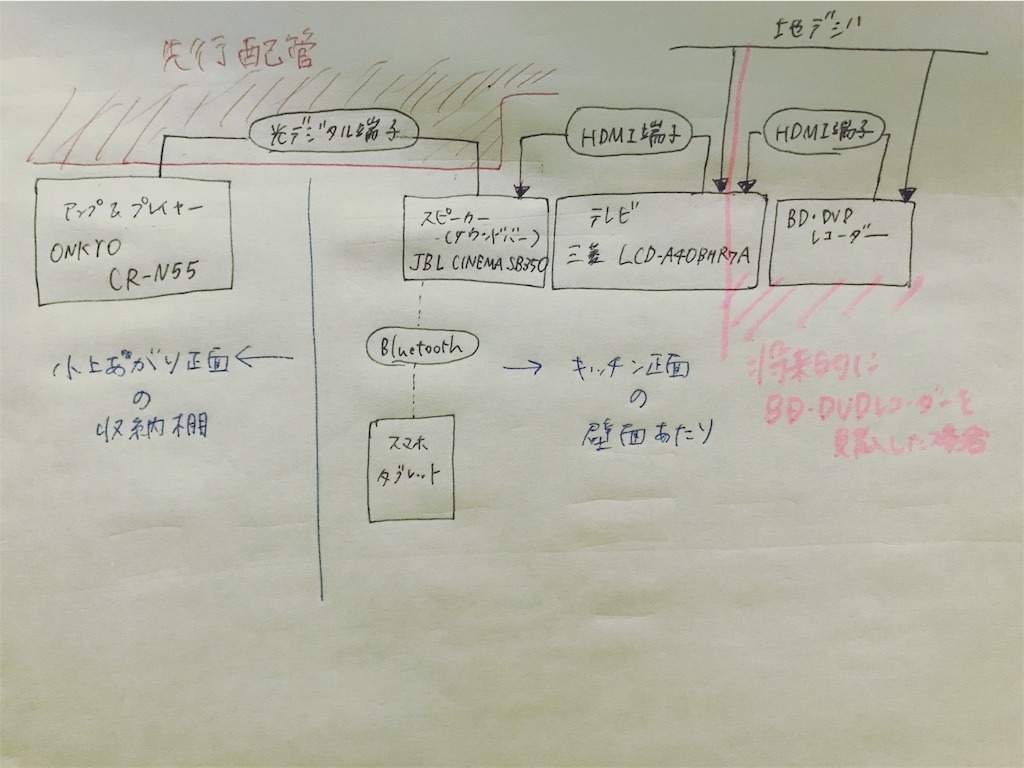 地デジ
先行配管
光デジタル端子
HDMI端子
HDMI端子
アンプ&プレイヤー
ONKYO
CR-N55
スピーカー
(サウンドバー)
JBL CINEMA SB350
テレビ
三菱 LCD-A40BHR7A
BD・DVD
レコーダー
Bluetooth
スマホ
タブレット
小上あがり正面
の
収納棚
キッチン正面
の
壁面あたり
将来的に
BD・DVDレコーダーを
購入した場合